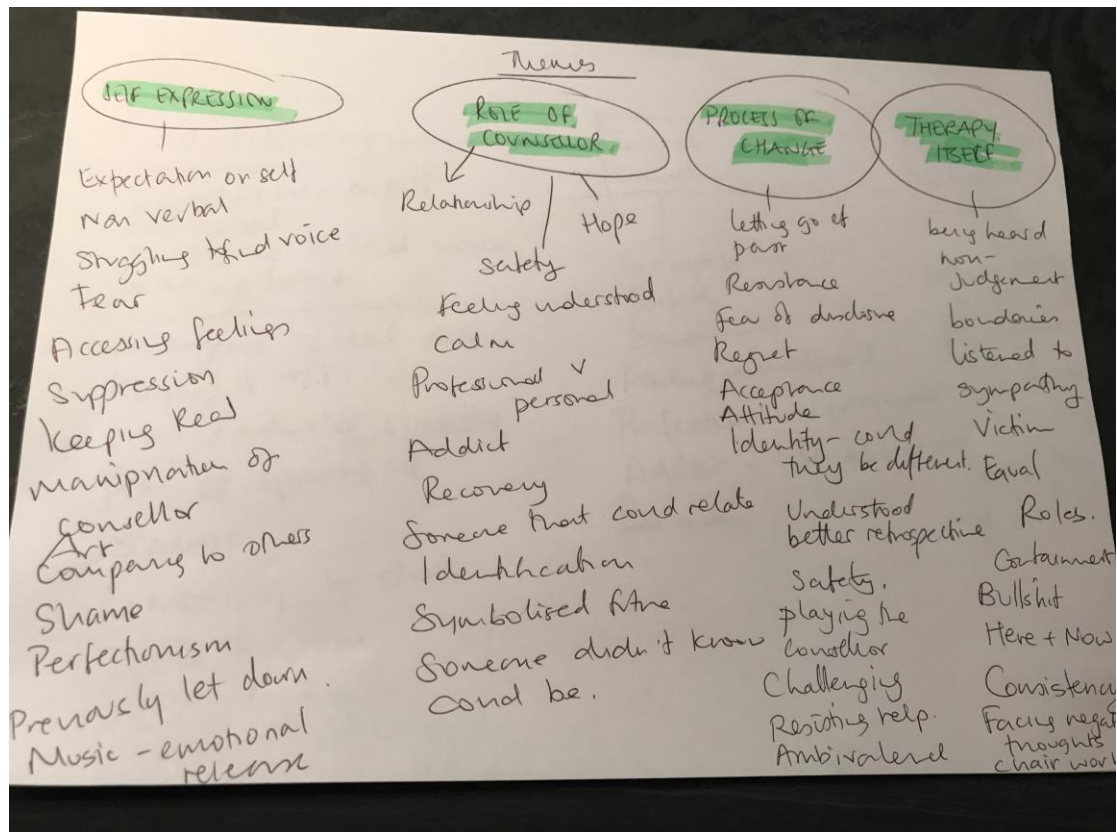 Themes
SELF EXPRESSION
Expectation on self
Non verbal
Struggling to find voice
Fear
Accessing feelings
Suppression
Keeping Real
Manipulation of
Consellor
Art
Comparing to others
Shame
Perfectionism
Previously let down.
Music - emotional
release
ROLE OF
COUNSELLOR
Relationship
Hope
safety
Feeling understood
Calm
Professional v
personal
Addict
Recovery
Someone that could relate
Identification
Symbolised
Someone didn't know
could be.
PROCESS OF
CHANGE
letting go of
past
Resistance
Fear of
Regret
Acceptance
Attitude
Identity - could
they be different.
Understood
better retrospective
Safety.
playing the
Counsellor
Challenging
Resisting help.
THERAPY
ITSELF
being heard
non-
Judgement
boundaries
Listened to
sympathy
Victim
Equal
Roles.
Containment
Bullshit
Here + Now
Consistency
Facing
thoughts
chair